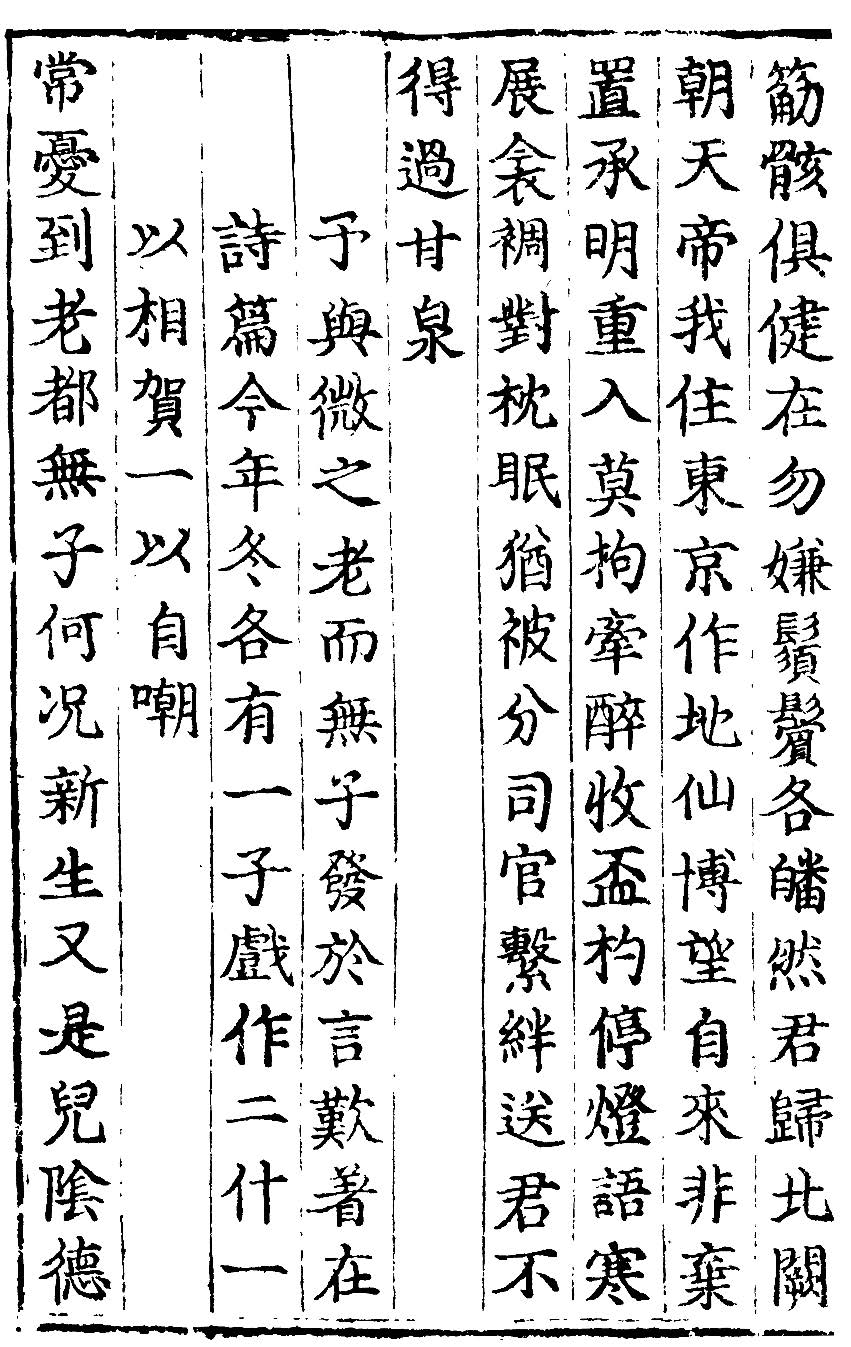 筋骸俱健在勿嫌鬚鬢各皤然君歸北闕
朝天帝我住東京作地仙博望自來非棄
置承明重入莫拘牽醉收盃杓停燈語寒
展衾裯對枕眠猶被分司官繫絆送君不
得過甘泉
予與微之老而無子發於言歎著在
詩篇今年冬各有一子戲作二什一
以相賀一以自嘲
常憂到老都無子何况新生又是兒陰德